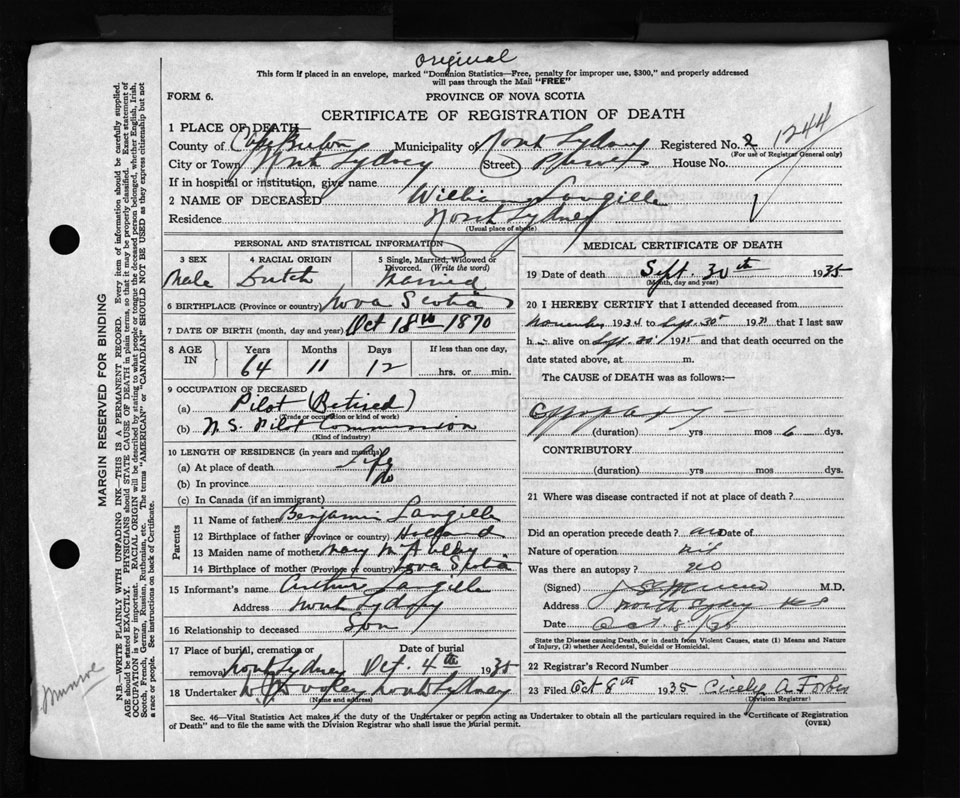 Original
This form if placed in an envelope, marked "Dominion Statistics—Free, penalty for improper use, $300," and properly addressed
will pass through the Mail "FREE"
FORM 6.
PROVINCE OF NOVA SCOTIA
CERTIFICATE OF REGISTRATION OF DEATH
1 PLACE OF DEATH—
1244
County of Cape Breton Municipality of North Sydney Registered No. 2
(For use of Registrar General only)
City or Town North Sydney Street House No.
If in hospital or institution, give name
2 NAME OF DECEASED William Langille
Residence North Sydney
(Usual place of abode)
PERSONAL AND STATISTICAL INFORMATION
3 SEX 4 RACIAL ORIGIN 5 Single, Married, Widowed or Divorced. (Write the word)
Male Dutch Married
6 BIRTHPLACE (Province or country) Nova Scotia
7 DATE OF BIRTH (month, day and year) Oct 18th 1870
8 AGE IN Years Months Days If less than one day,
64 11 12 hrs. or min.
9 OCCUPATION OF DECEASED
(a) Pilot (Retired)
(Trade or occupation or kind of work)
(b) N.S. Pilot Commission
(Kind of industry)
10 LENGTH OF RESIDENCE (in years and months)
(a) At place of death Life
(b) In province
(c) In Canada (if an immigrant)
Parents
11 Name of father Benjamin Langille
12 Birthplace of father (Province or country) Holland
13 Maiden name of mother Mary
14 Birthplace of mother (Province or country) Nova Scotia
15 Informant's name Arthur Langille
Address North Sydney
16 Relationship to deceased Son
17 Place of burial, cremation or removal Date of burial
North Sydney Oct. 4th 1935
18 Undertaker North Sydney
(Name and address)
MEDICAL CERTIFICATE OF DEATH
19 Date of death Sept. 30th 1935
(Month, day and year)
20 I HEREBY CERTIFY that I attended deceased from
November 1934 to Sept. 30th 1935 that I last saw
h alive on Sept. 30th 1935 and that death occurred on the
date stated above, at m.
The CAUSE of DEATH was as follows:—
(duration) yrs mos 6 dys.
CONTRIBUTORY
(duration) yrs. mos. dys.
21 Where was disease contracted if not at place of death?
Did an operation precede death? Date of
Nature of operation nil
Was there an autopsy? no
(Signed) M.D.
Address North Sydney
Date Oct 8 / 35
State the Disease causing Death, or in death from Violent Causes, state (1) Means and Nature
of Injury, (2) whether Accidental, Suicidal or Homicidal.
22 Registrar's Record Number
23 Filed Oct 8th 1935 Cicely A. Forbes
(Division Registrar)
Sec. 46—Vital Statistics Act makes it the duty of the Undertaker or person acting as Undertaker to obtain all the particulars required in the "Certificate of Registration
of Death" and to file the same with the Division Registrar who shall issue the burial permit.
(OVER)
MARGIN RESERVED FOR BINDING
N.B.—WRITE PLAINLY WITH UNFADING INK—THIS IS A PERMANENT RECORD. Every item of information should be carefully supplied.
AGE should be stated EXACTLY. PHYSICIANS should STATE CAUSE OF DEATH in plain terms, so that it may be properly classified. Exact statement of
OCCUPATION is very important. RACIAL ORIGIN will be described by stating to what people or tongue the deceased person belonged, whether English, Irish,
Scotch, French, German, Russian, Ruthenian, etc. The terms "AMERICAN" or "CANADIAN" SHOULD NOT BE USED as they express citizenship but not
a race or people. See instructions on back of Certificate.
Munroe